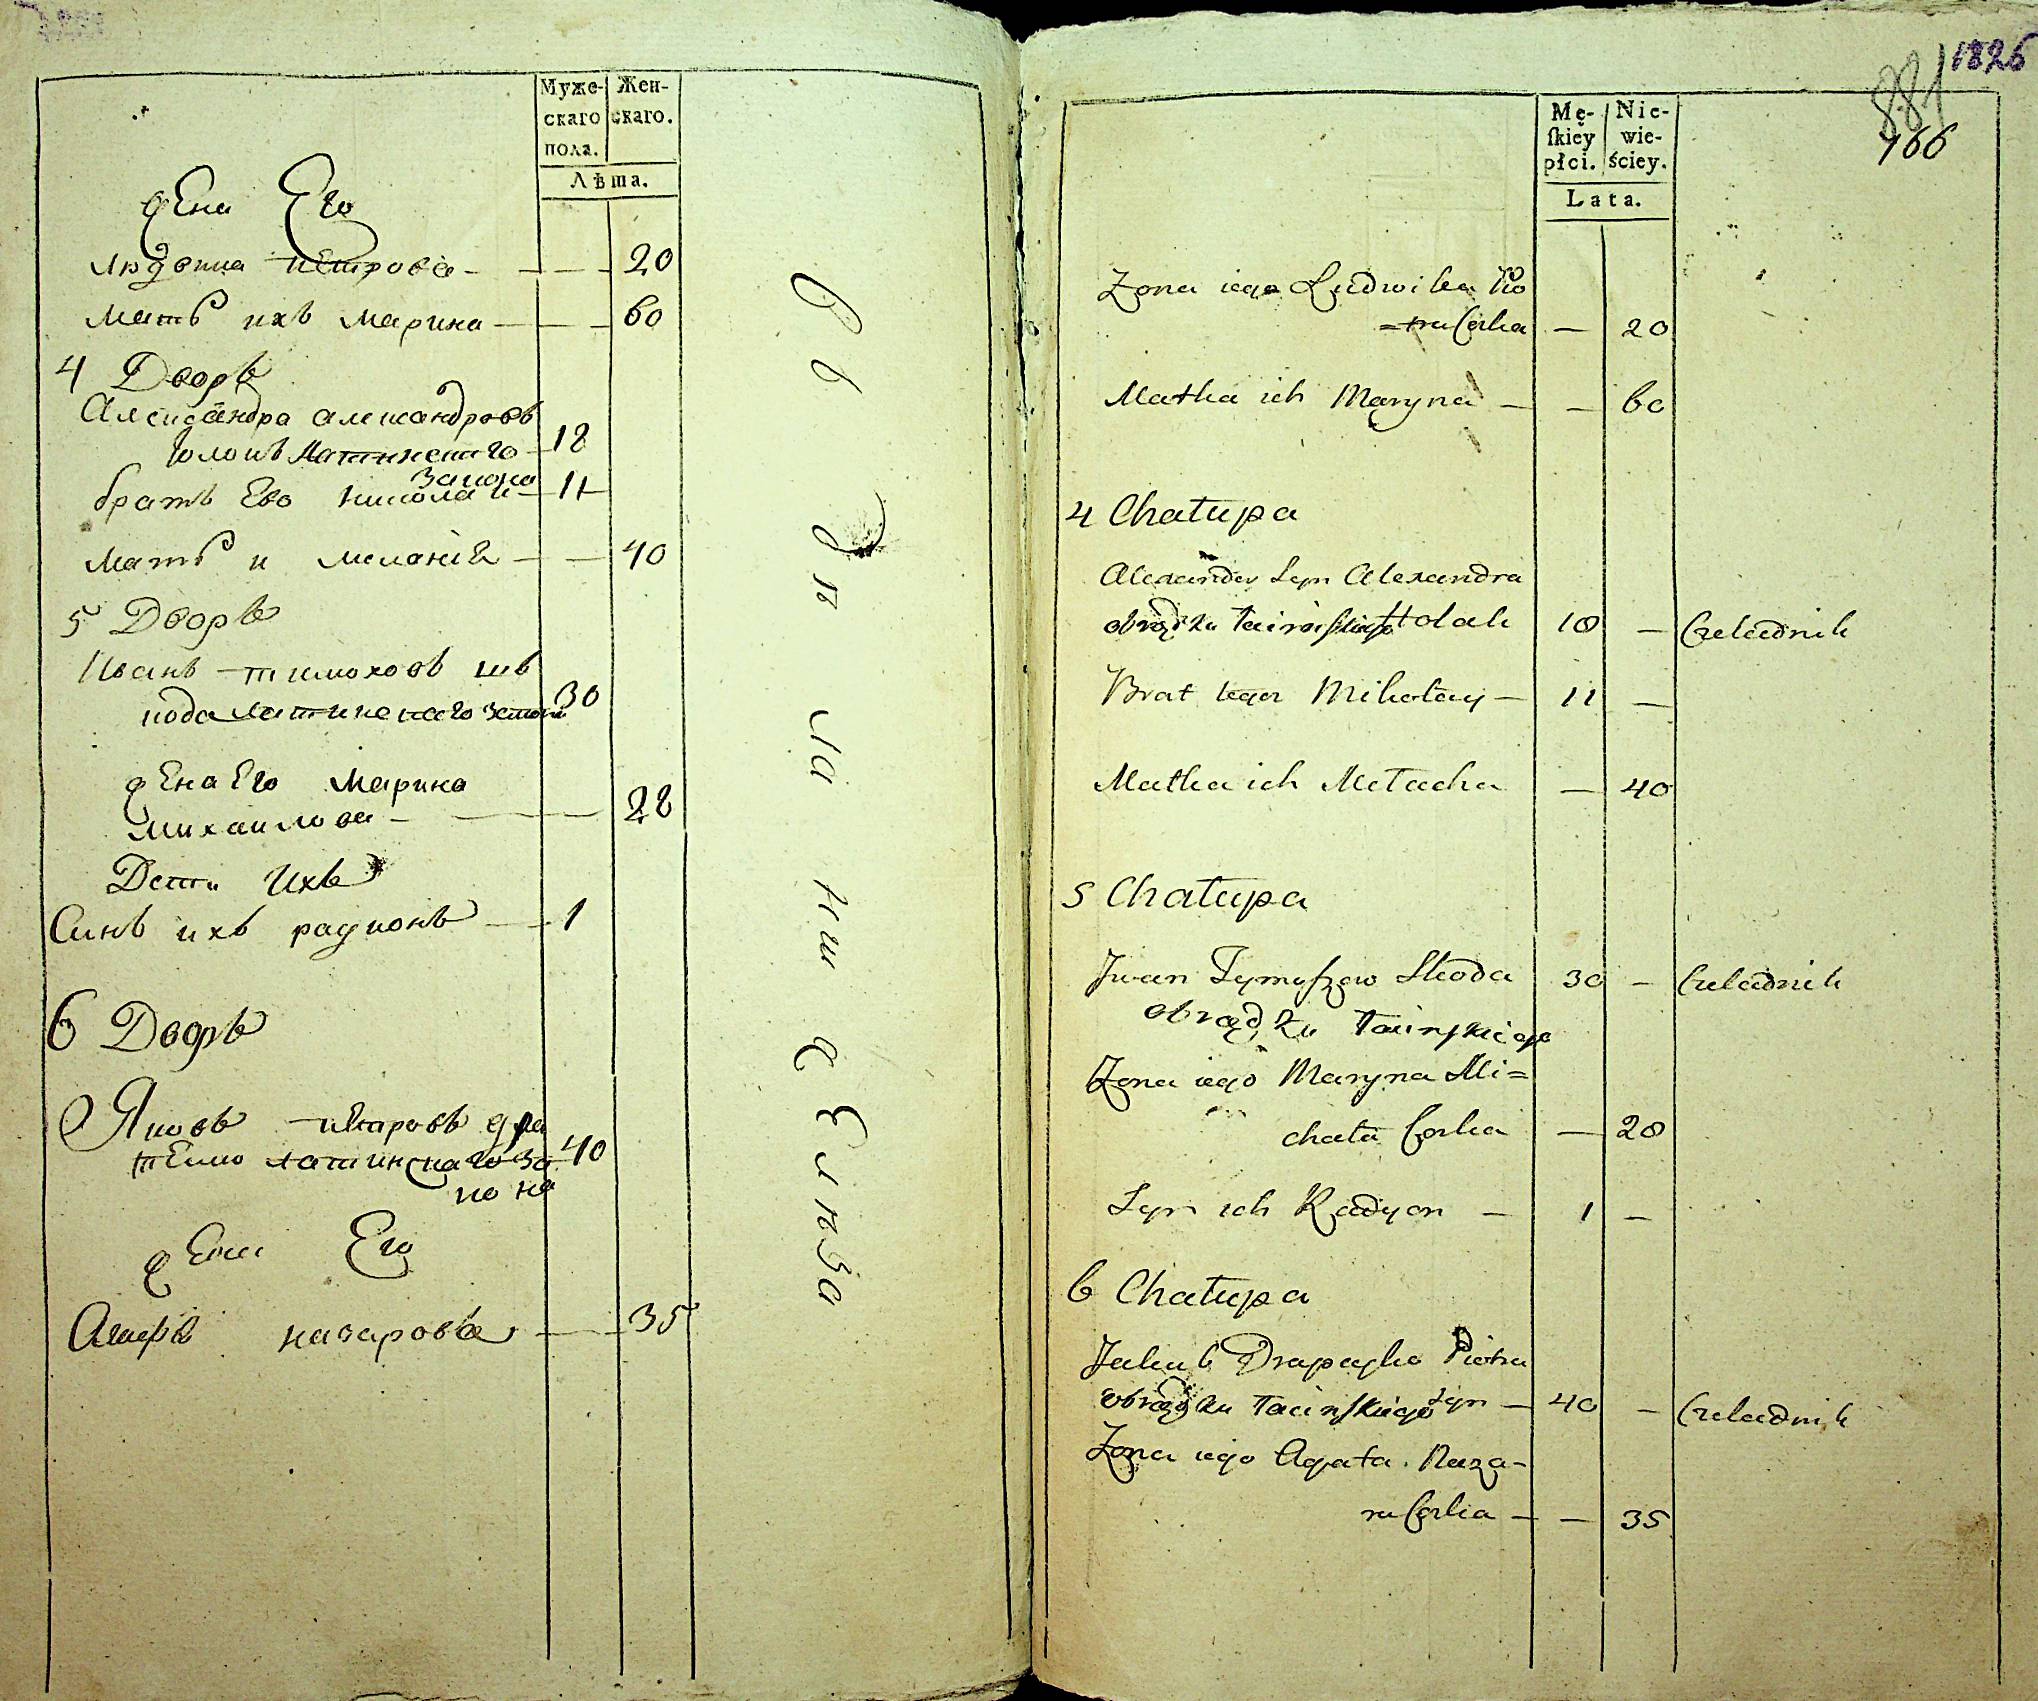 Муже-
скаго
пола.
Жен-
скаго.
Лѣта.
жена Его
людвика петрова - - - - 20
мать ихъ марина - - - 60
4 Дворъ
Александра александровъ
голокъ Латинскаго - 18
закона
братъ Его николаи - 11 -
мать и мелания - - 40
5 Дворъ
Иванъ тимоховъ шв
кода латинскаго закона 30
жена Его марина
михаилова - - 28
Дети Ихъ
Синъ ихъ радионъ - 1
6 Дворъ
Яковъ петровъ дра
латинскаго за 40
кона
жена Его
Агафъ назарова - - 35
1826
881
466
Mę-
skiey
płci.
Nie-
wie-
ściey.
Lata.
Zona iego Ludwika Pio
=tra Corka — 20
Matka ich Maryna — — 60
4 Chałupa
Alexander Syn Alexandra
obrządku Łacińskiego Holak 18 — Czeladnik
Brat iego Mikołay — 11 —
Matka ich Małacha — 40
5 Chałupa
Jwan Tymoszow Skoda 30 — Czeladnik
obrządku Łacinskiego
Zona iego Maryna Mi=
chała Corka — 28
Syn ich Radyon — 1 —
6 Chałupa
Jakub Drapayko Piotra
obrządku Łacinskiego Syn — 40 — Czeladnik
Zona iego Agata Naza-
ra Corka — — 35